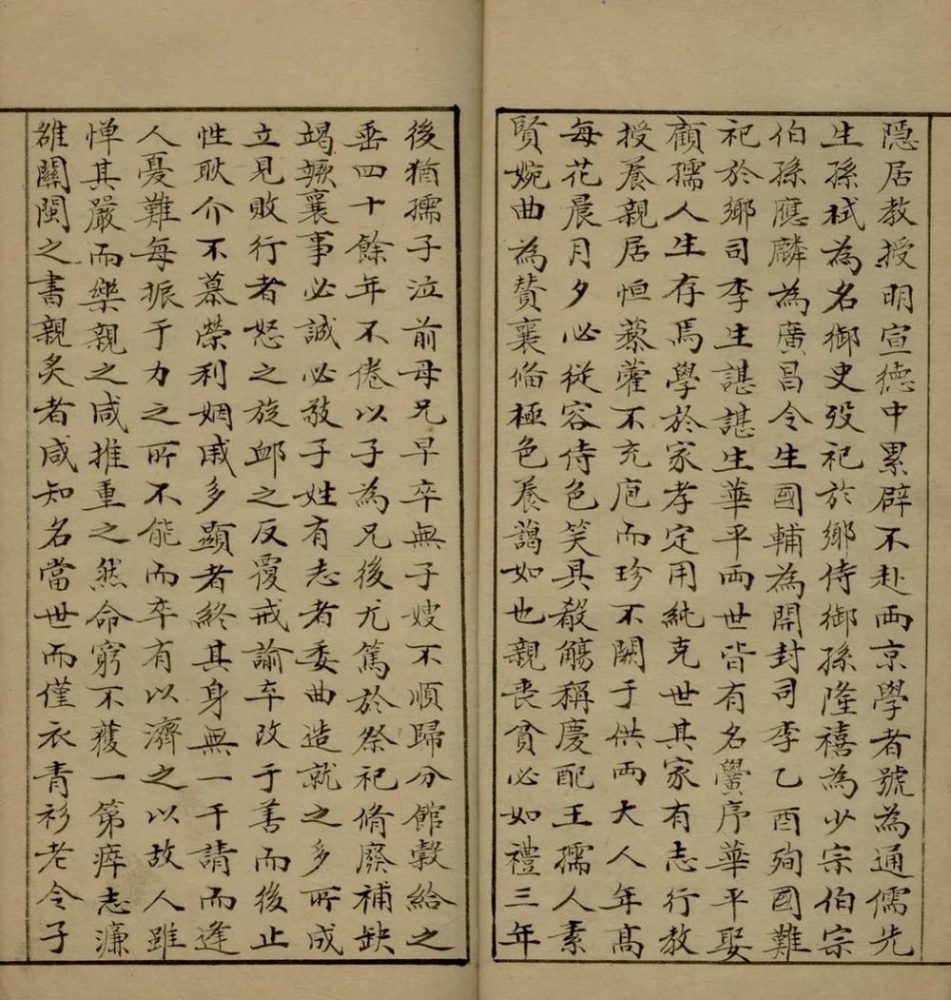 隱居教授明宣德中累辟不赴兩京學者號為通儒先
生孫栻為名御史歿祀於鄉侍御孫隆禧為少宗伯宗
伯孫應麟為廣昌令生國輔為開封司李乙酉殉國難
祀於鄉司李生諶諶生華平兩世皆有名黌序華平娶
顧孺人生存焉學於家孝定用純克世其家有志行教
授養親居恒藜藿不充庖而珍不闕于供兩大人年高
每花晨月夕必從容侍色笑具殽觴稱慶配王孺人素
賢婉曲為贊襄備極色養藹如也親喪貧必如禮三年
後猶孺子泣前母兄早卒無子嫂不順歸分館穀給之
垂四十餘年不倦以子為兄後尤篤於祭祀脩廢補缺
竭蹶襄事必誠必敬子姓有志者委曲造就之多所成
立見敗行者怒之旋卹之反覆戒諭卒改于善而後止
性耿介不慕榮利姻戚多顯者終其身無一干請而逢
人憂難每振于力之所不能而卒有以濟之以故人雖
憚其嚴而樂親之咸推重之然命窮不獲一第瘁志濂
雒關閩之書親炙者咸知名當世而僅衣青衫老令子